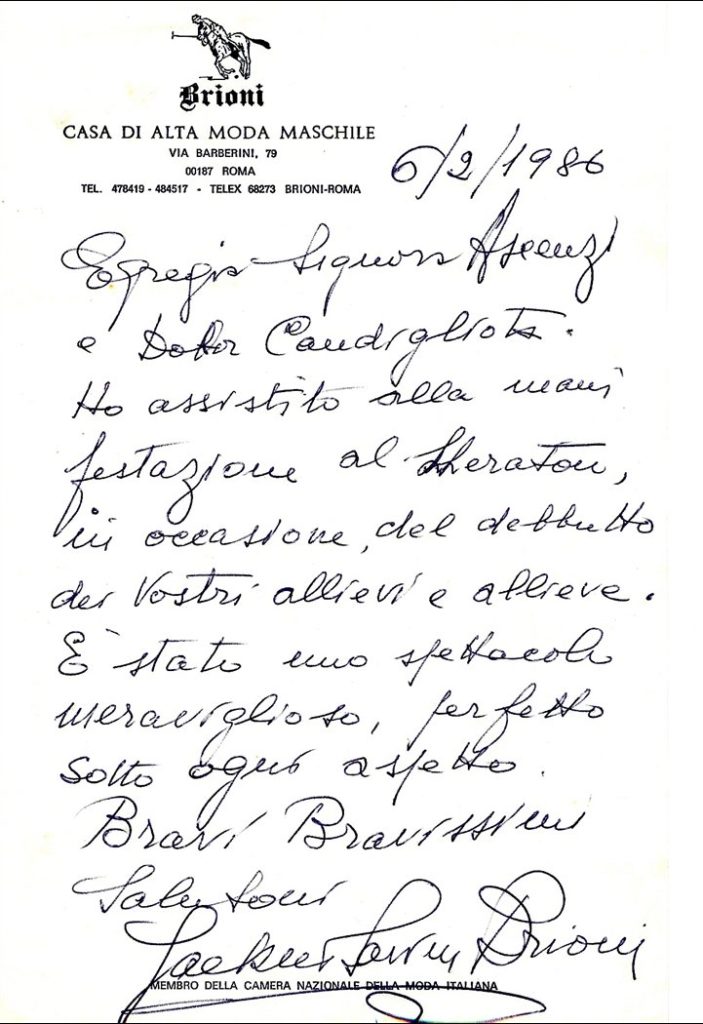 Brioni
CASA DI ALTA MODA MASCHILE
VIA BARBERINI, 79
00187 ROMA
TEL. 478419 - 484517 - TELEX 68273 BRIONI-ROMA
6/2/1986
Egregia Signora Ascenzi
e Dottor Candigliota.
Ho assistito alla mani
festazione al Sheraton,
in occasione, del debbutto
dei Vostri allievi e allieve.
È stato uno spettacolo
meraviglioso, perfetto
sotto ogni aspetto.
Bravi Bravissimi
Salutoni
Savini Brioni
MEMBRO DELLA CAMERA NAZIONALE DELLA MODA ITALIANA